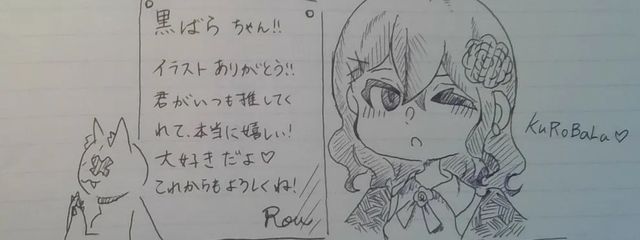 黒ばら ちゃん!!
イラスト ありがとう!!
君がいつも推してく
れて、本当に嬉しい!
大好きだよ♡
これからもよろしくね!
Rou
KuRoBaLa♡